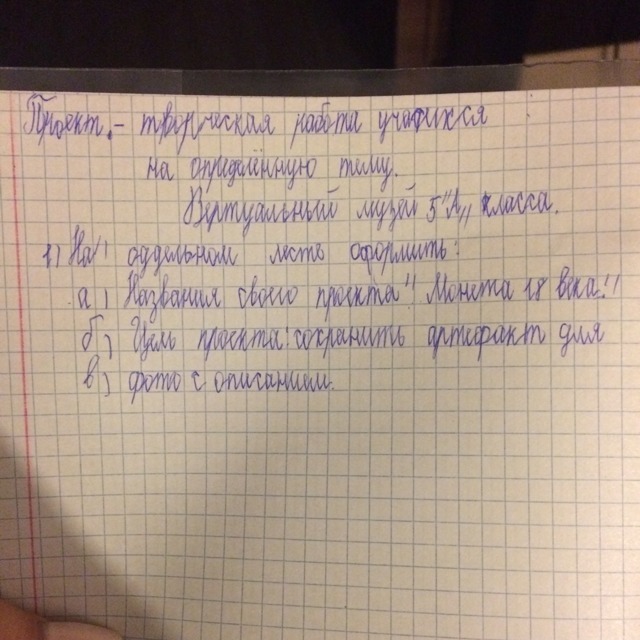 Проект.- творческая работа учащихся
на определённую тему.
Виртуальный музей 5"А" класса.
1) На оддельном месть оформить:
а) Названия своего проекта "Монета 18 века."
б) Цель проекта: сохранить артефакт для
в) фото с описанием.